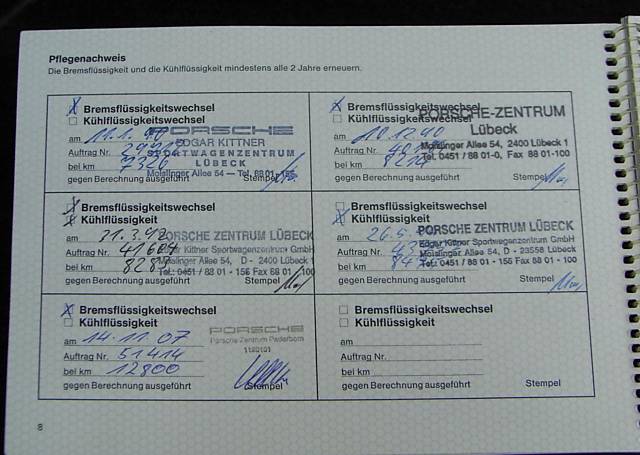 Pflegenachweis
Die Bremsflüssigkeit und die Kühlflüssigkeit mindestens alle 2 Jahre erneuern.
X Bremsflüssigkeitswechsel
Kühlflüssigkeitswechsel
am 11.1.
PORSCHE
EDGAR KITTNER
Auftrag Nr.
SPORTWAGENZENTRUM
LÜBECK
bei km 7326
Moislinger Allee 54 — Tel.
gegen Berechnung ausgeführt Stempel
X Bremsflüssigkeitswechsel
Kühlflüssigkeitswechsel
PORSCHE-ZENTRUM
Lübeck
am 10.12.90
Moislinger Allee 54, 2400 Lübeck 1
Auftrag Nr.
Tel. 0451 / 88 01-0, Fax 88 01-100
bei km
gegen Berechnung ausgeführt Stempel
X Bremsflüssigkeitswechsel
X Kühlflüssigkeit
am 31.3.92
PORSCHE ZENTRUM LÜBECK
Auftrag Nr.
Edgar Kittner Sportwagenzentrum GmbH
Moislinger Allee 54, D - 2400 Lübeck 1
bei km
Tel.: 0451 / 88 01 - 156 Fax 88 01 - 100
gegen Berechnung ausgeführt Stempel
Bremsflüssigkeitswechsel
X Kühlflüssigkeit
am 26.5.
PORSCHE ZENTRUM LÜBECK
Auftrag Nr.
Edgar Kittner Sportwagenzentrum GmbH
Moislinger Allee 54, D - 23558 Lübeck
bei km
Tel.: 0451 / 88 01 - 156 Fax 88 01 - 100
gegen Berechnung ausgeführt Stempel
X Bremsflüssigkeitswechsel
Kühlflüssigkeit
am 14.11.07
PORSCHE
Porsche Zentrum Paderborn
Auftrag Nr. 51414
1120101
bei km 12800
gegen Berechnung ausgeführt Stempel
Bremsflüssigkeitswechsel
Kühlflüssigkeit
am
Auftrag Nr.
bei km
gegen Berechnung ausgeführt Stempel
8